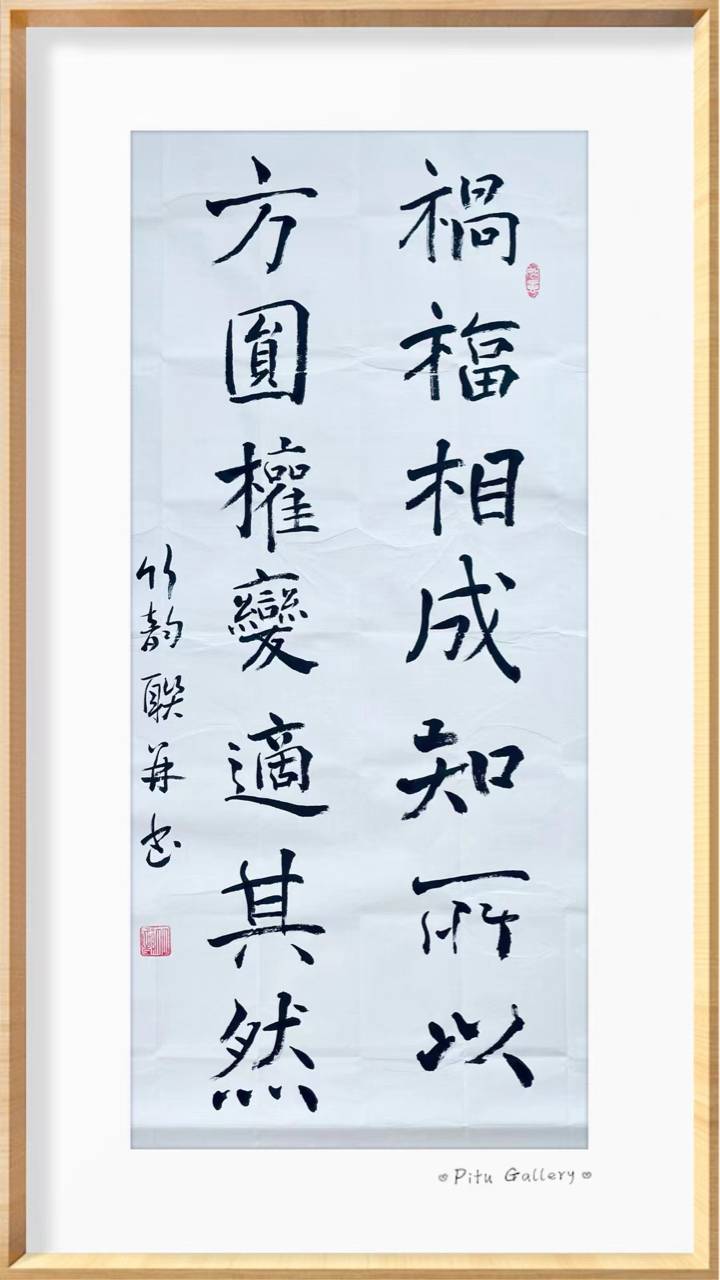 禍福相成知所以
方圓權變適其然
竹韵聯并书
Pitu Gallery